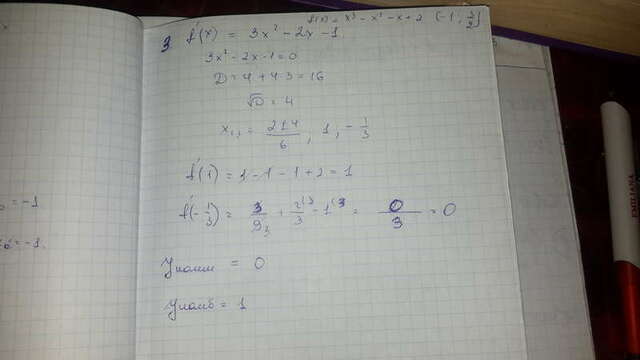 f(x) = x³ - x² - x + 2 (-1; 3/2]
3 f'(x) = 3x² - 2x - 1
3x² - 2x - 1 = 0
D = 4 + 4·3 = 16
√D = 4
x₁,₂ = 2±4/6 ; 1 ; -1/3
f'(1) = 1 - 1 - 1 + 2 = 1
f'(-1/3) = 3/9₃ + 2⁽³/3 - 1⁽³ = 0/3 = 0
Yнаим = 0
Yнаиб = 1
= -1
= -1.